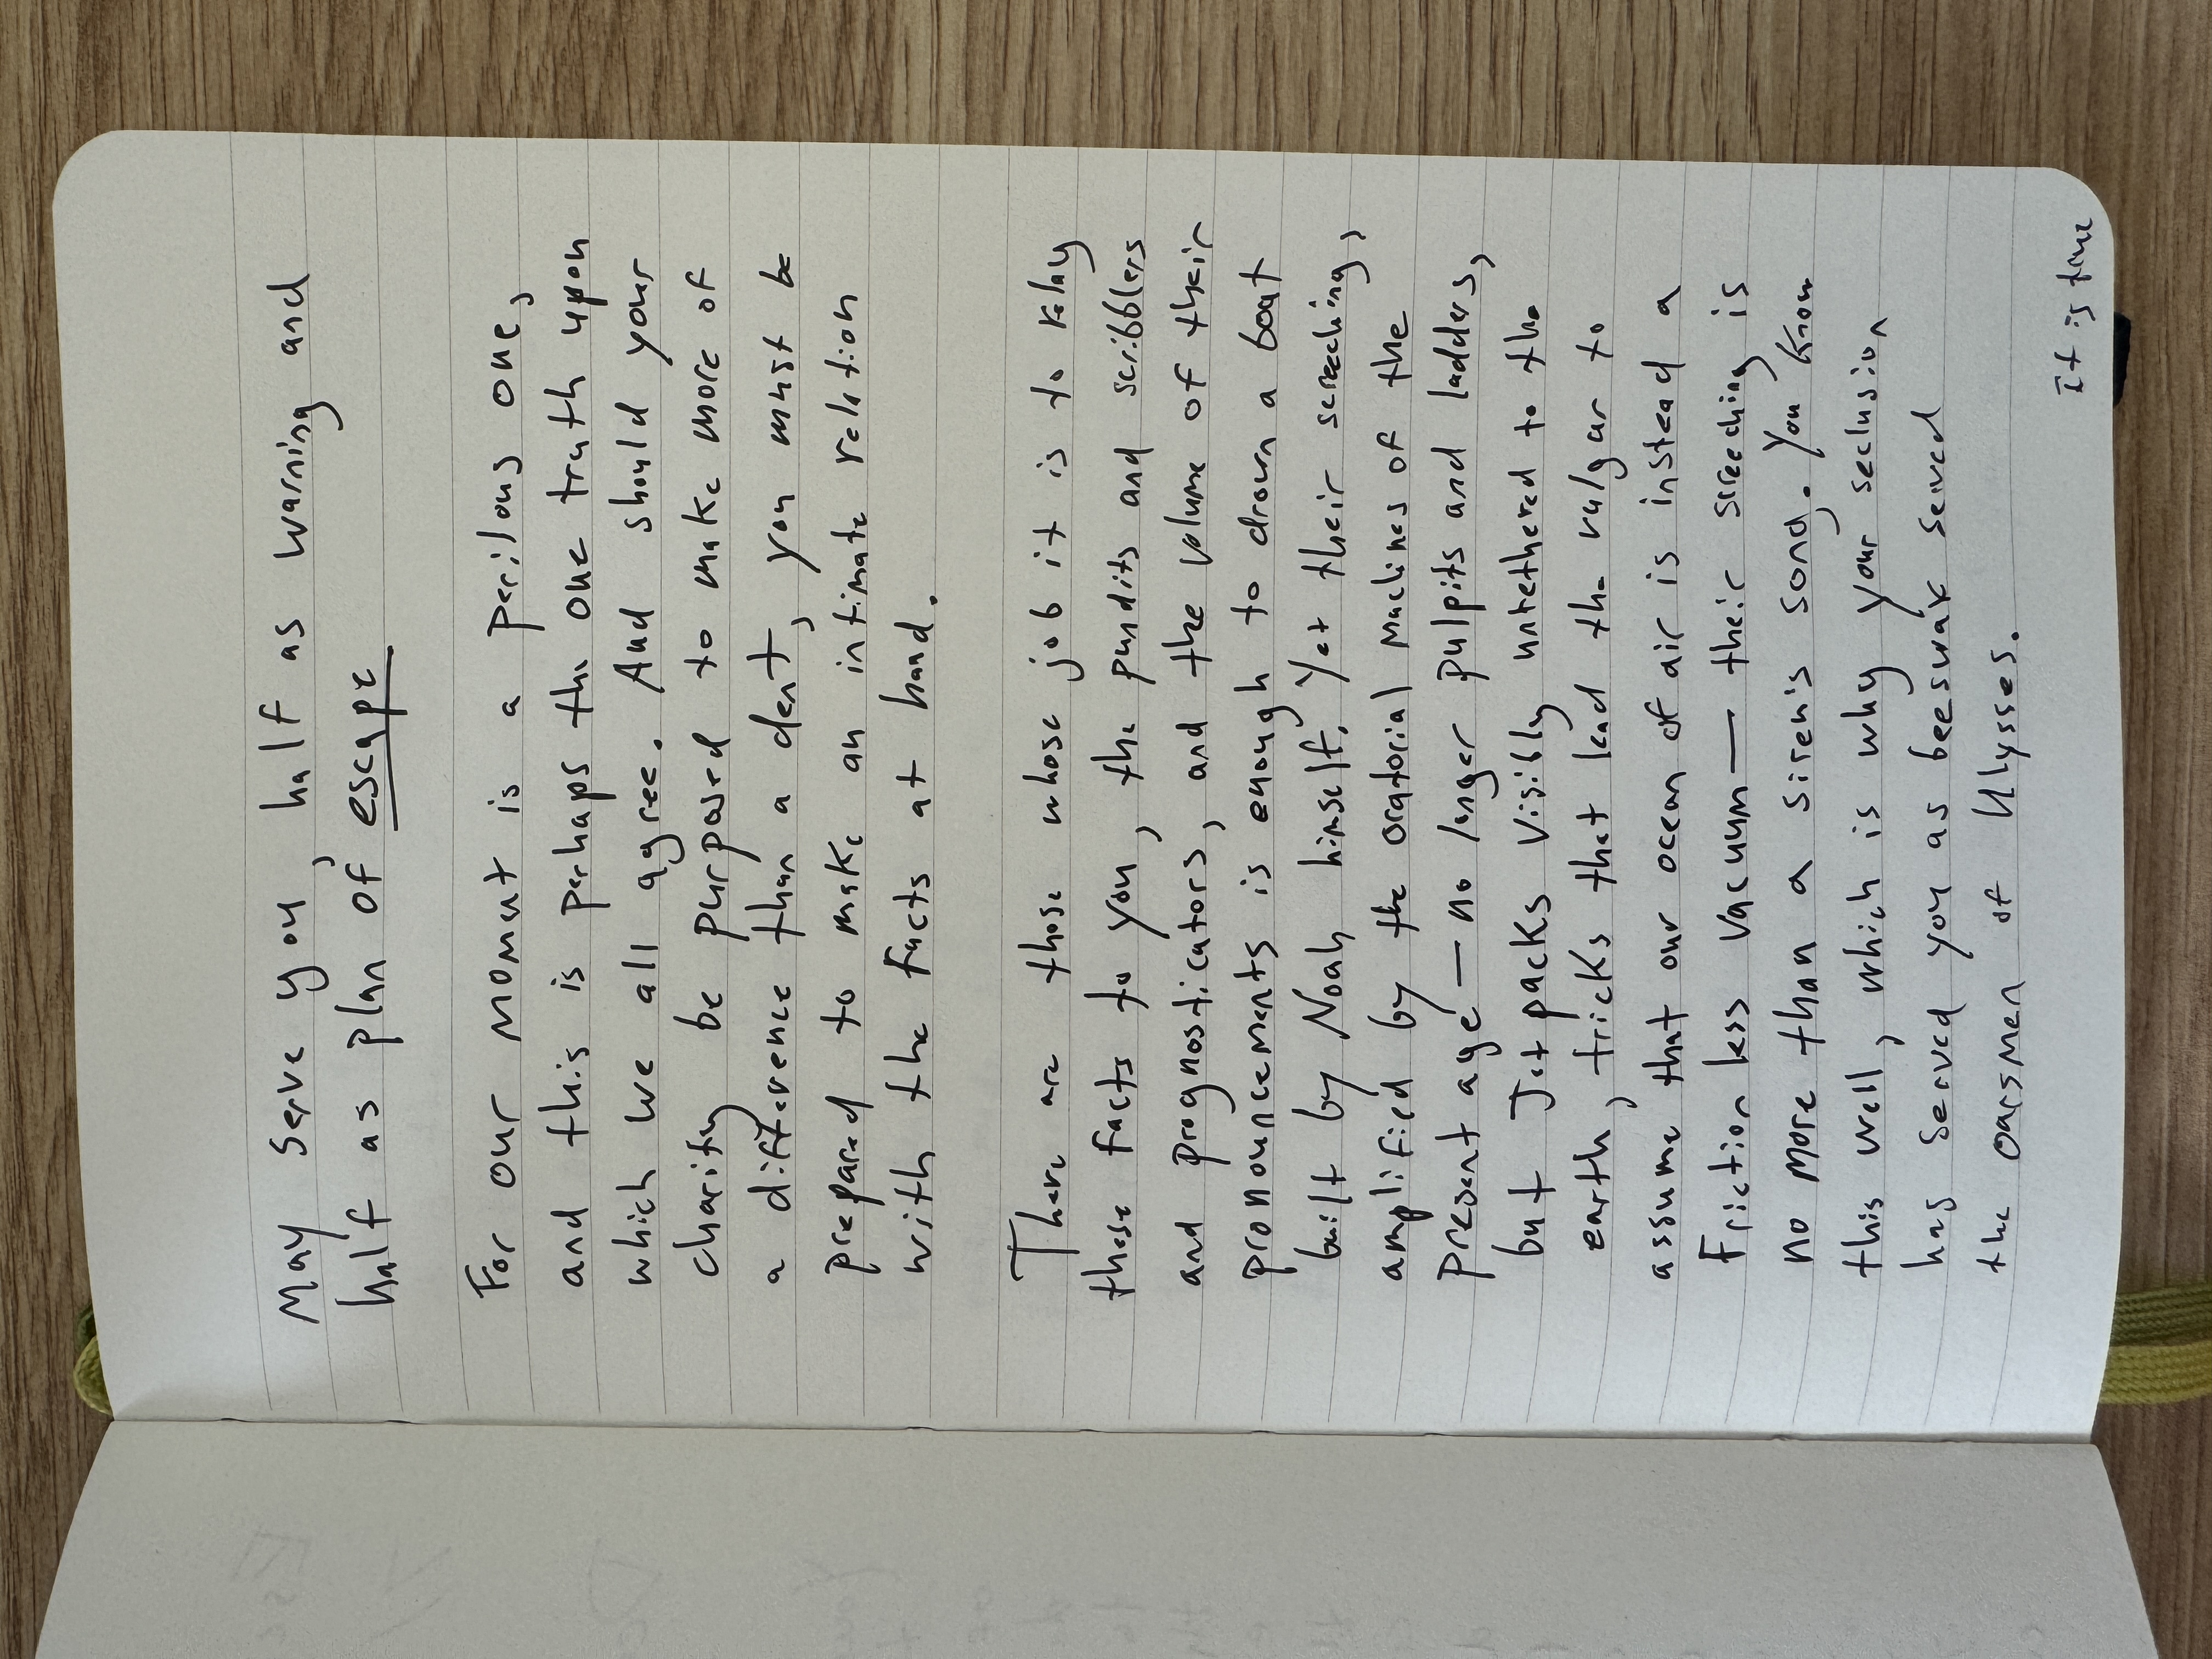 May serve you, half as warning and
half as plan of escape.
For our moment is a perilous one,
and this is perhaps the one truth upon
which we all agree. And should your
charity be purposed to make more of
a difference than a dent, you must be
prepared to make an intimate relation
with the facts at hand.
There are those whose job it is to relay
these facts to you, the pundits and scribblers
and prognosticators, and the volume of their
pronouncements is enough to drown a boat
built by Noah himself. Yet their screeching,
amplified by the oratorial machines of the
present age — no longer pulpits and ladders,
but Jet packs visibly untethered to the
earth, tricks that lead the vulgar to
assume that our ocean of air is instead a
frictionless vacuum — their screeching is
no more than a siren's song. You know
this well, which is why your seclusion
has served you as beeswax served
the oarsmen of Ulysses.
it is true